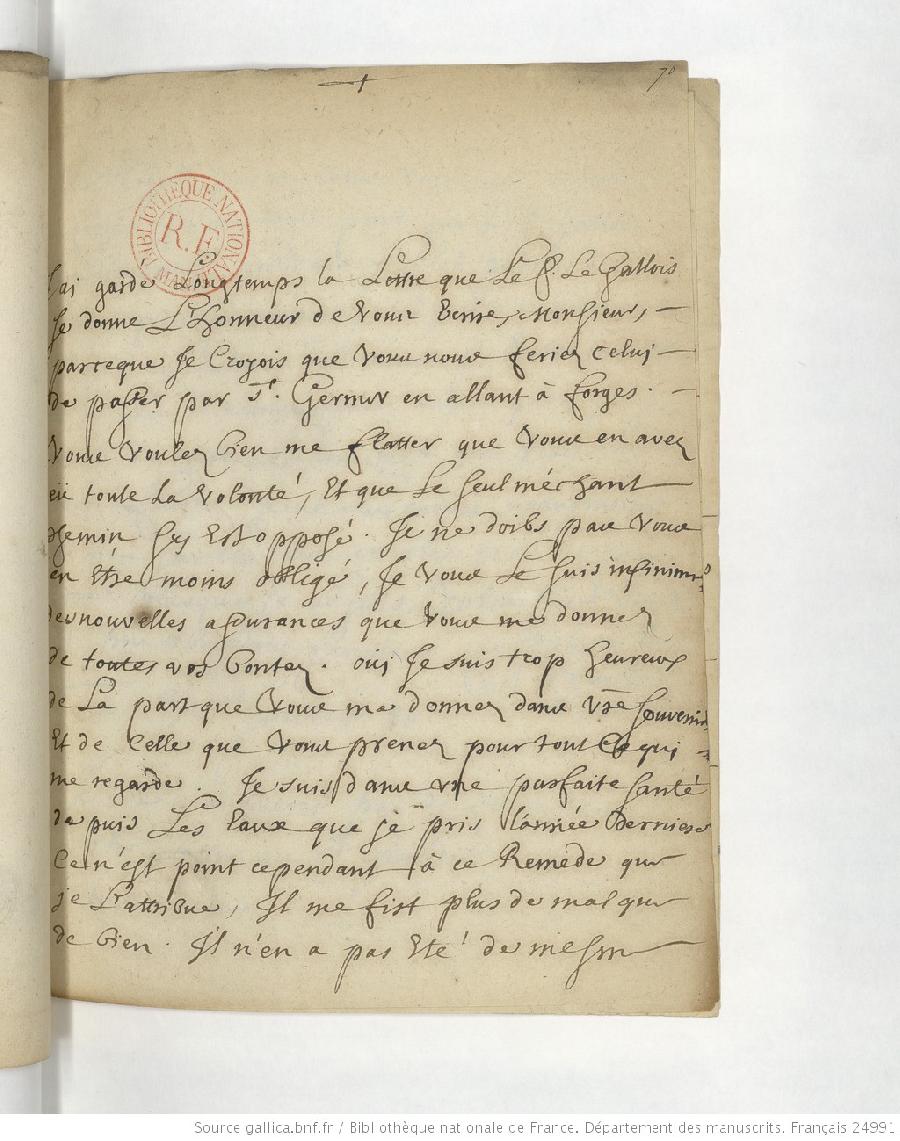 70
BIBLIOTHÈQUE NATIONALE
R.F
J'ai gardé Longtemps la Lettre que Le P. Le Gallois
se donne L'Honneur de vous Ecrire, Monsieur, —
parceque Je Croyois que Vous nous feriez Celui —
de passer par St. Germer en allant à forges. —
Vous Voulez bien me flatter que Vous en avez
eü toute La Volonté, Et que Le seul méchant
chemin s'y Est opposé. Je ne doibs pas Vous
en Etre moins obligé, Je Vous Le suis infinimt
des nouvelles assurances que Vous me donnez
de toutes vos bontez. oüi Je suis trop heureux
de La part que Vous me donnez dans Vre souvenir
Et de Celle que Vous prenez pour tout Ce qui —
me regarde. Je suis dans une parfaite santé
depuis Les Eaux que j'é pris L'année derniere
Ce n'est point cependant à ce Remede que
je L'attribue, Il me fist plus de mal que
de bien. Il n'en a pas Eté de mesme
Source gallica.bnf.fr / Bibliothèque nationale de France. Département des manuscrits. Français 24991